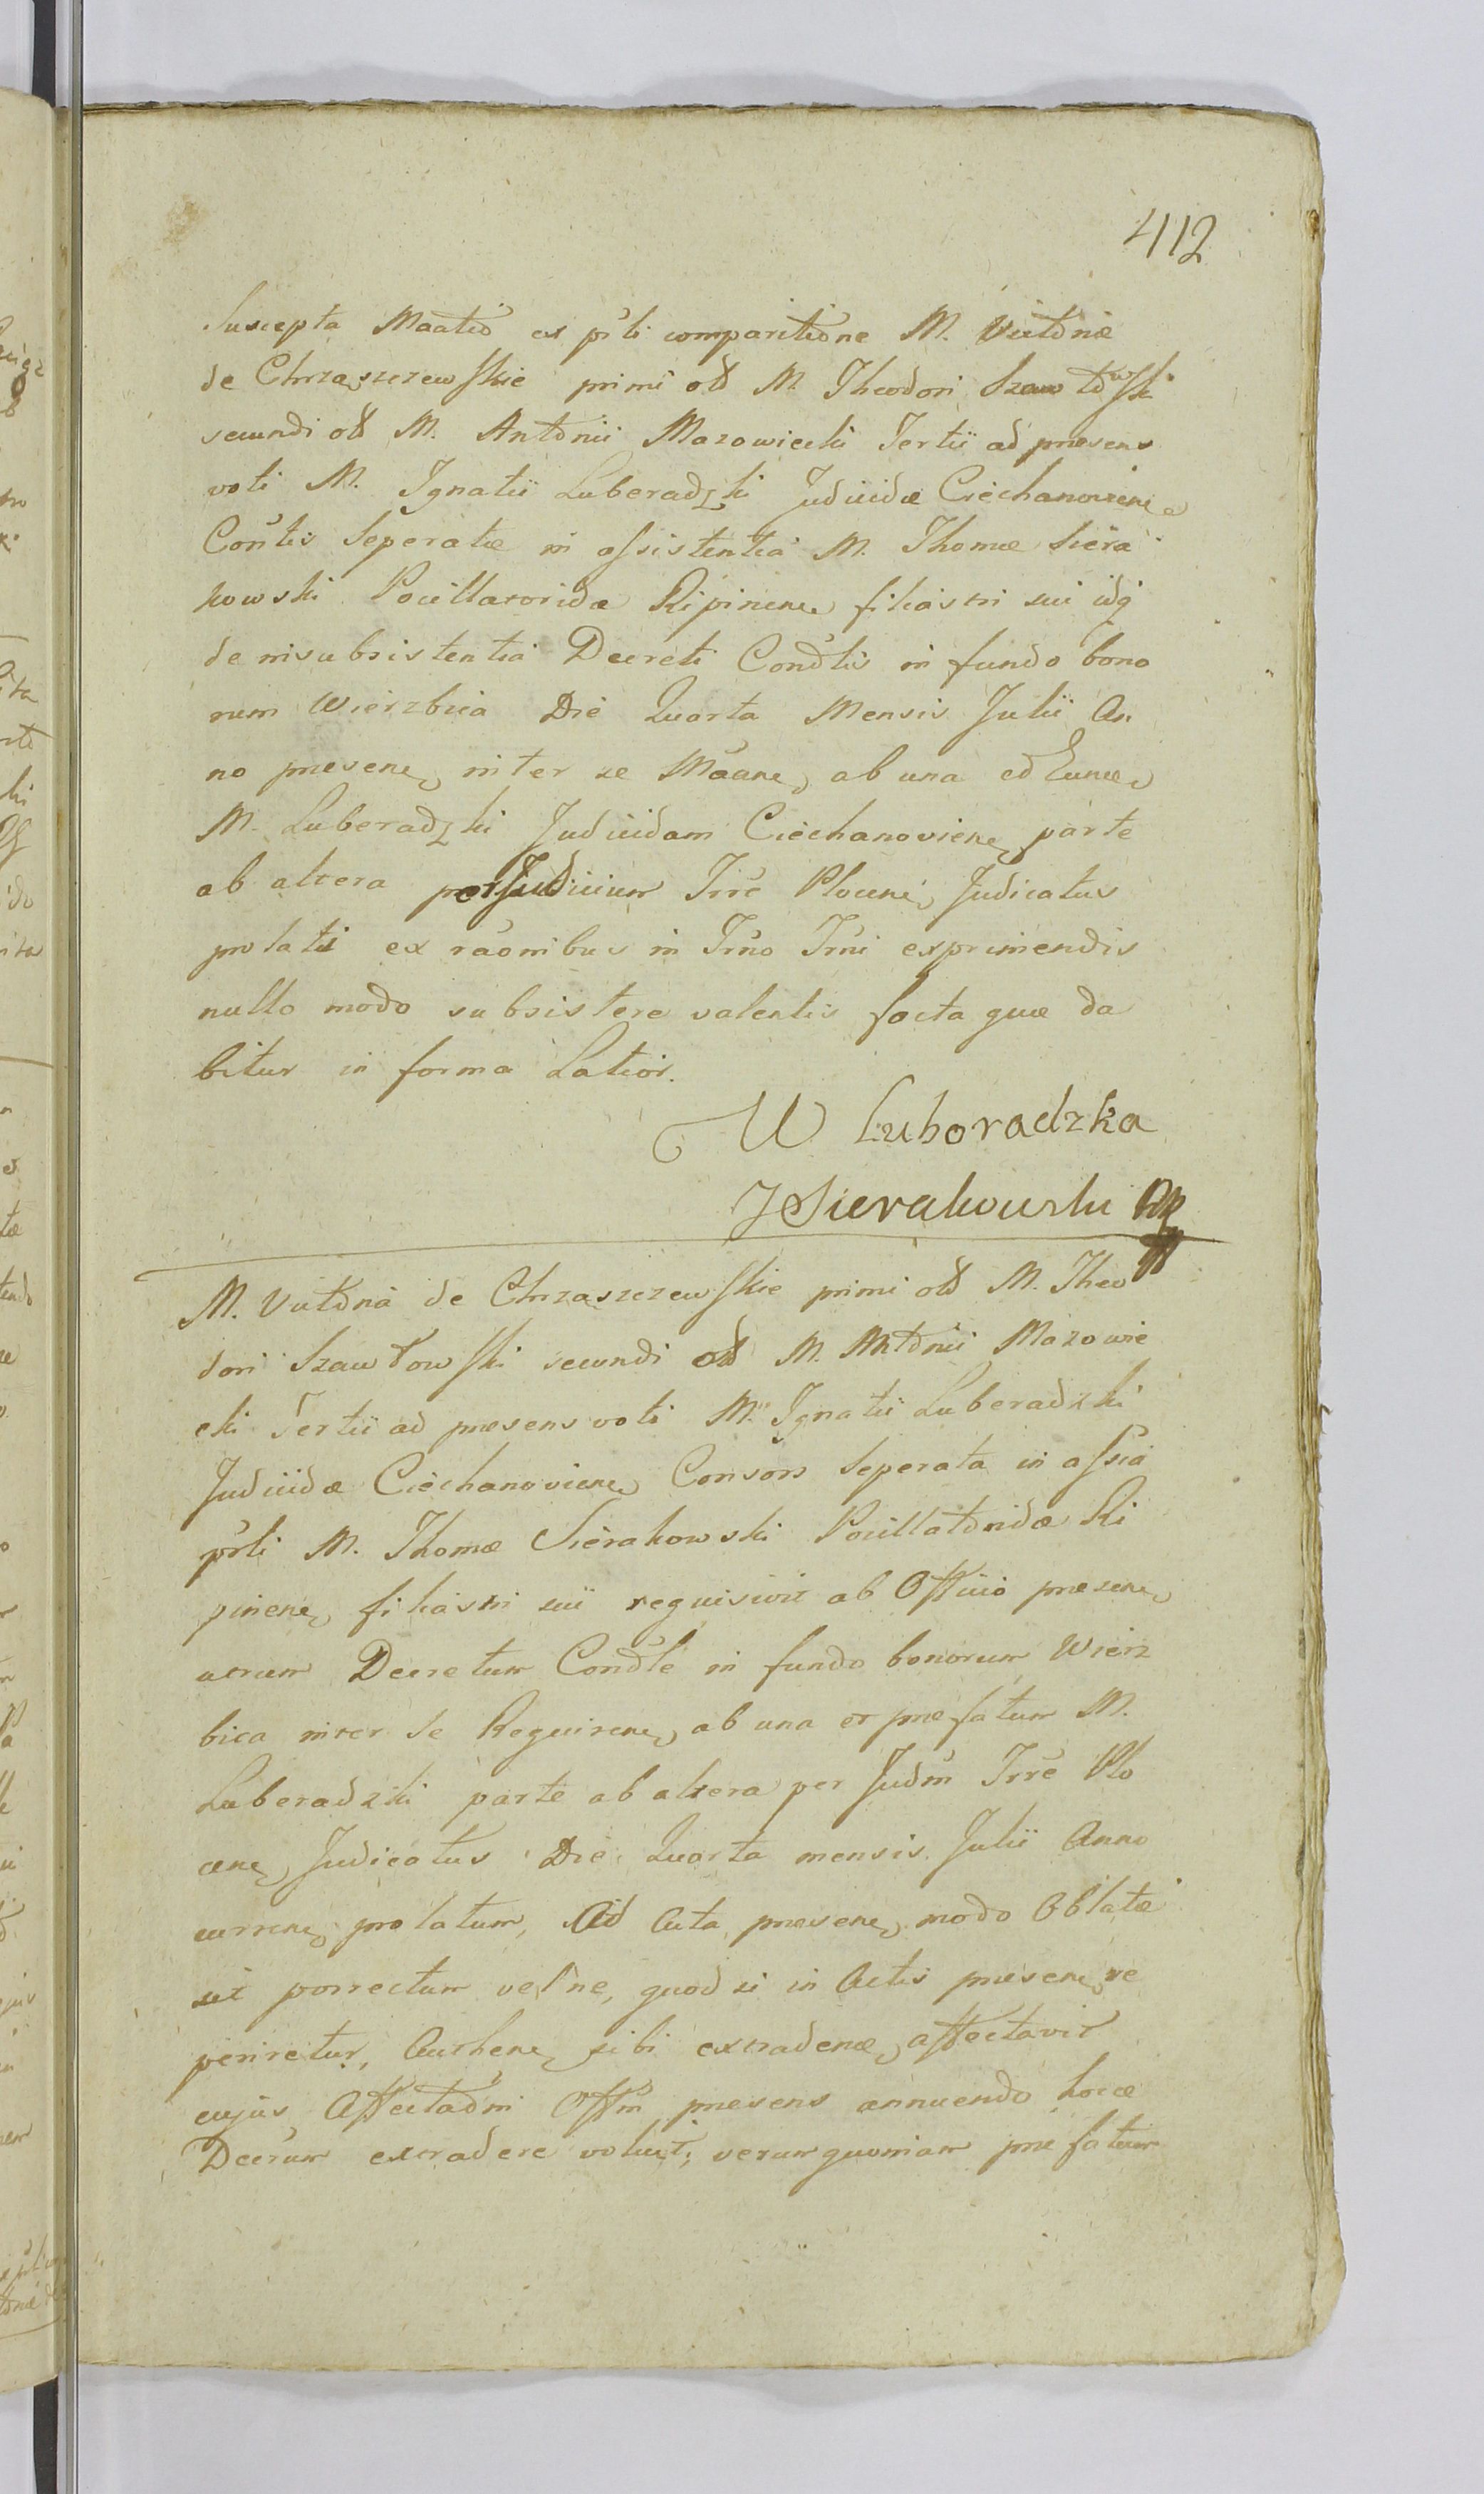 412
Suscepta Maatio ex prli comparitione M. Victoriæ
de Chrzaszczewskie primi olt M. Theodori Szawłowski
secundi olt M. Antonii Mazowiecki Tertii ad præsens
voti M. Ignatii Luberadzki Judicidæ Ciechanoviene
Contis Seperatæ in assistentia M. Thomæ Siera
kowski Pocillatoridæ Ripinene filiastri sui idq
de insubsistentia Decreti Condlis in fundo bono
rum Wierzbica Die Quarta Mensis Julii An
no præsene inter se Maane ab una et Eunde
M. Luberadzki Judicidam Ciechanoviene parte
ab altera per Judicium Trre Plocene Judicatus
prolati ex raonibus in Trno Trni exprimendis
nullo modo subsistere valentis facta quæ da
bitur in forma Latior.
W Luboradzka
T Sierakowski
M. Victoria de Chrzaszczewskie primi olt M. Theo
dori Szawłowski secundi olt M. Antonii Mazowie
cki Tertii ad præsens voti M. Ignatii Luberadzki
Judicidæ Ciechanoviene Consors Seperata in assia
prli M. Thomæ Sierakowski Pocillatoridæ Ri
pinene filiastri sui requisivit ab Officio præsene
utrum Decretum Condle in fundo bonorum Wierz
bica inter se Requirene ab una et præfatum M.
Luberadzki parte ab altera per Judm Trre Plo
cene Judicatus Die Quarta mensis Julii Anno
currene prolatum, Ad Acta præsene modo Oblatæ
sit porrectum vel ne, quod si in Actis præsene re
periretur, Authene sibi extradene affectavit
cujus Affectaoni Offm præsens annuendo hocce
Decrum extradere voluit; verum quoniam præfatum